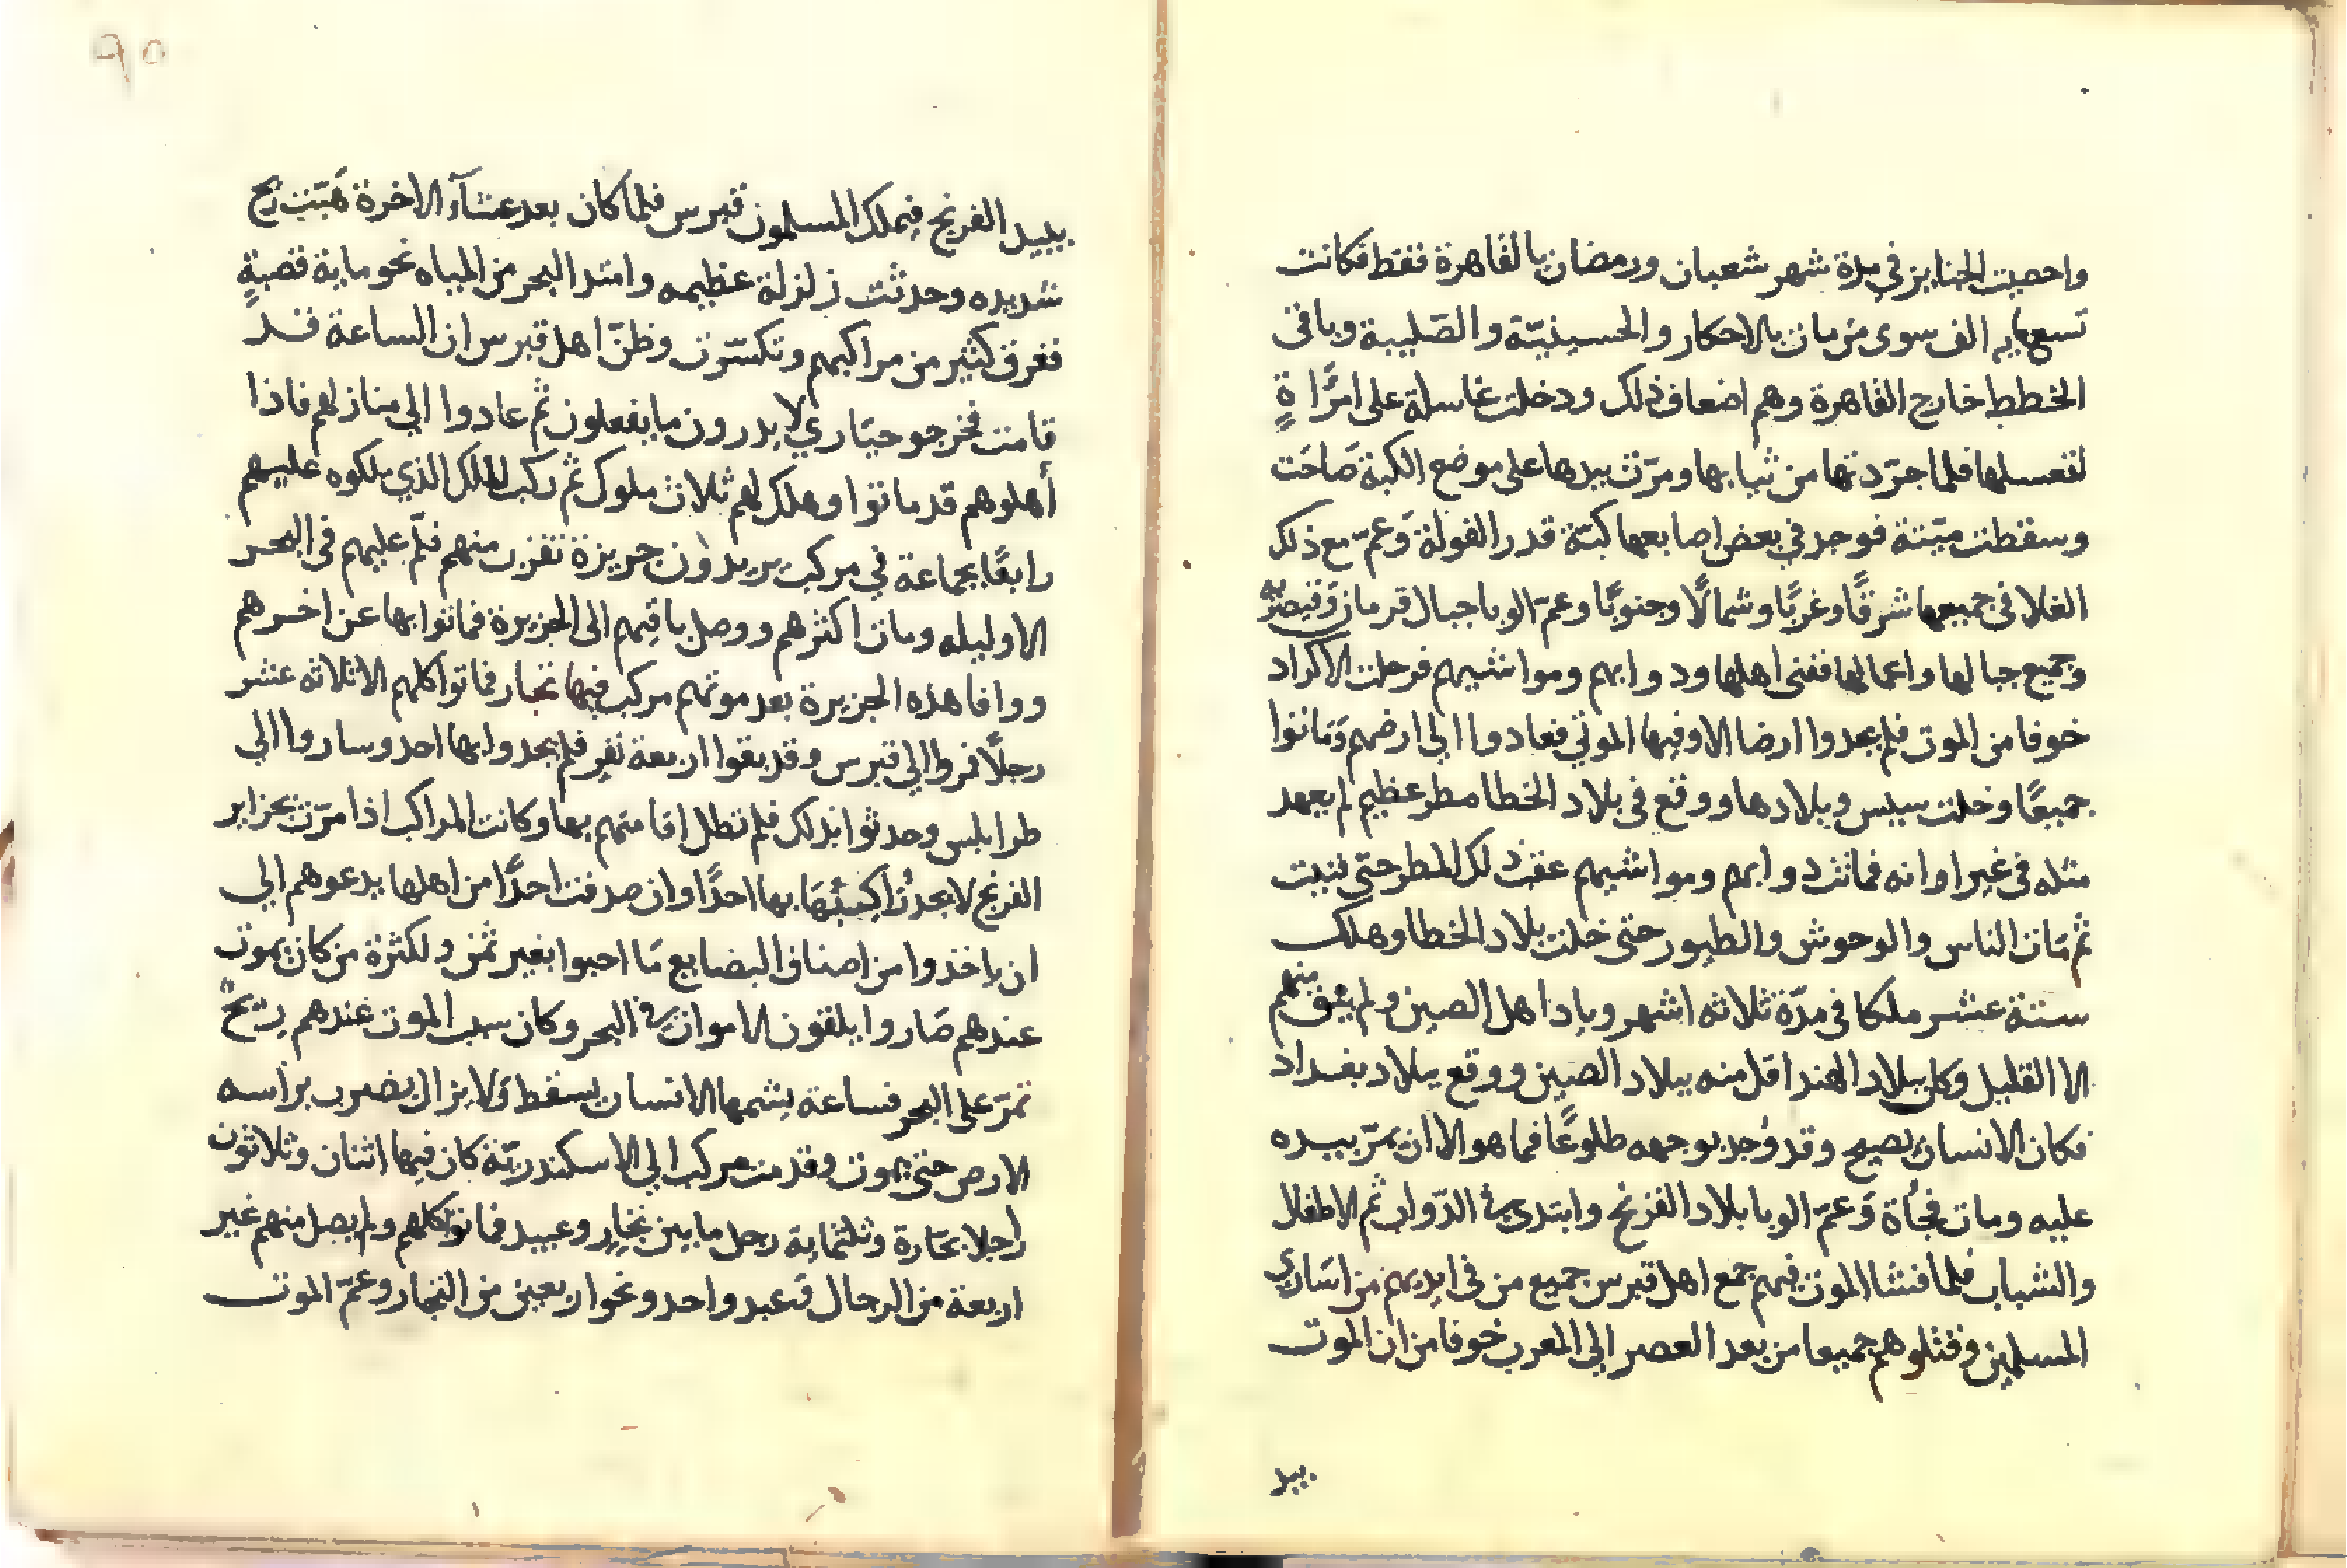 واحصيت الجنايز في مدة شهر شعبان ورمضان بالقاهرة فقط فكانت
تسعمايه الف سوى من مات بالاحكار والحسينيّة والصّليبة وباقى
الخطط خارج القاهرة وهم اضعاف ذلك ودخلت غاسلة على امرَّاةٍ
لتغسلها فلما جرّدتها من ثيابها ومرّت بيدها على موضع الكبة صَاحَت
وسقطت ميّتة فوجد في بعض اصابعها كبّة قدر الفولة وَعمّ مع ذلك
الغلا فى جميعها شرقًا وغربًا وشمالًا وجنوبًا وعمّ الوبا جبال قرمان وَقيصريه
وجميع جبالها واعمالها ففنى اهلها ودوابهم ومواشيهم فرحلت الاكراد
خوفا من الموت فلم يجدوا ارضا الا وفيها الموتي فعادوا الي ارضهم وَماتوا
جميعًا وخلت سيس وبلادها ووقع فى بلاد الخطا مطر عظيم لم يعهد
مثله فى غير اوانه فماتت دوابهم ومواشيهم عقب ذلك المطر حتّى فنيت
ثم مَات الناس والوحوش والطيور حتى خلت بلاد الخطا وهلك
ستة عشر ملكا فى مدّة ثلاثه اشهر وباد اهل الصين ولم يبق منهم
الا القليل وكان ببلاد الهند اقل منه ببلاد الصين ووقع ببلاد بغداد
فكان الانسان يصبح وقد وُجد بوجهه طلوعًا فما هو الا ان يمرّ بيده
عليه ومات فجُاة وَعمّ الوبا بلاد الفرنج وابتدى فى الدّواب ثم الاطفال
والشباب فلما فشا الموت فيهم جمع اهل قبرس جميع من فى ايديهم من اسَارى
المسلمين وقتلوهم جميعا من بعد العصر الي المغرب خوفا من ان الموت
يبيد
٩٥
يبيد الفرنج فيملك المسلمون قبرس فلما كان بعد عشآء الاخرة هَبّت ريح
شديده وحدثت زلزلة عظيمه وامتد البحر من المياه نحو ماية قصبةٍ
فغرق كثير من مراكبهم وتكسّرت وظنّ اهل قبرس ان الساعة قد
قامت فخرجو حيَاري لا يدرون ما يفعلون ثم عادوا الي منازلهم فاذا
أهلوهم قد ماتوا وهلك لهم ثلاث ملوك ثم ركب الملك الذي ملكوه عليهم
رابعًا بجماعة في مركب يريدون جزيزة تقرب منهم فلم عليهم فى البحر
الا وليله ومات اكثرهم ووصل باقيهم الى الجزيرة فماتوا بها عن اخرهم
ووافا هذه الجزيرة بعد موتهم مركب فيها تجار فماتوا كلهم الا ثلاثه عشر
رجلًا فمروا الي قبرس وقد بقوا اربعة نفر فلم يجدوا بها احد وساروا الي
طرابلس وحدثوا بذلك فلم تطل اقامتهم بها وكانت المراكب اذا مرّت بجزاير
الفرنج لا تجد بها احدًا وان صدفت احدًا من اهلها يدعوهم الي
ان ياخذوا من اصناف البضايع مَا احبوا بغير ثمن ولكثرة من كان يموت
عندهم صَاروا يلقون الاموات فى البحر وكان سبب الموت عندهم ريحٌ
تمرّ على البحر فساعة يشمها الانسان يسقط وَلا يزال يضرب براسه
الارض حتى يموت وقدمت مركب الي الاسكندريّة كان فيها اثنان وثلاثون
راجلا بحّارة وثلثماية رجل ما بين تجار وعبيد فماتوا كلهم ولم يصل منهم غير
اربعة من الرجال وَعبد واحد ونحو اربعين من التجار وعمّ الموت